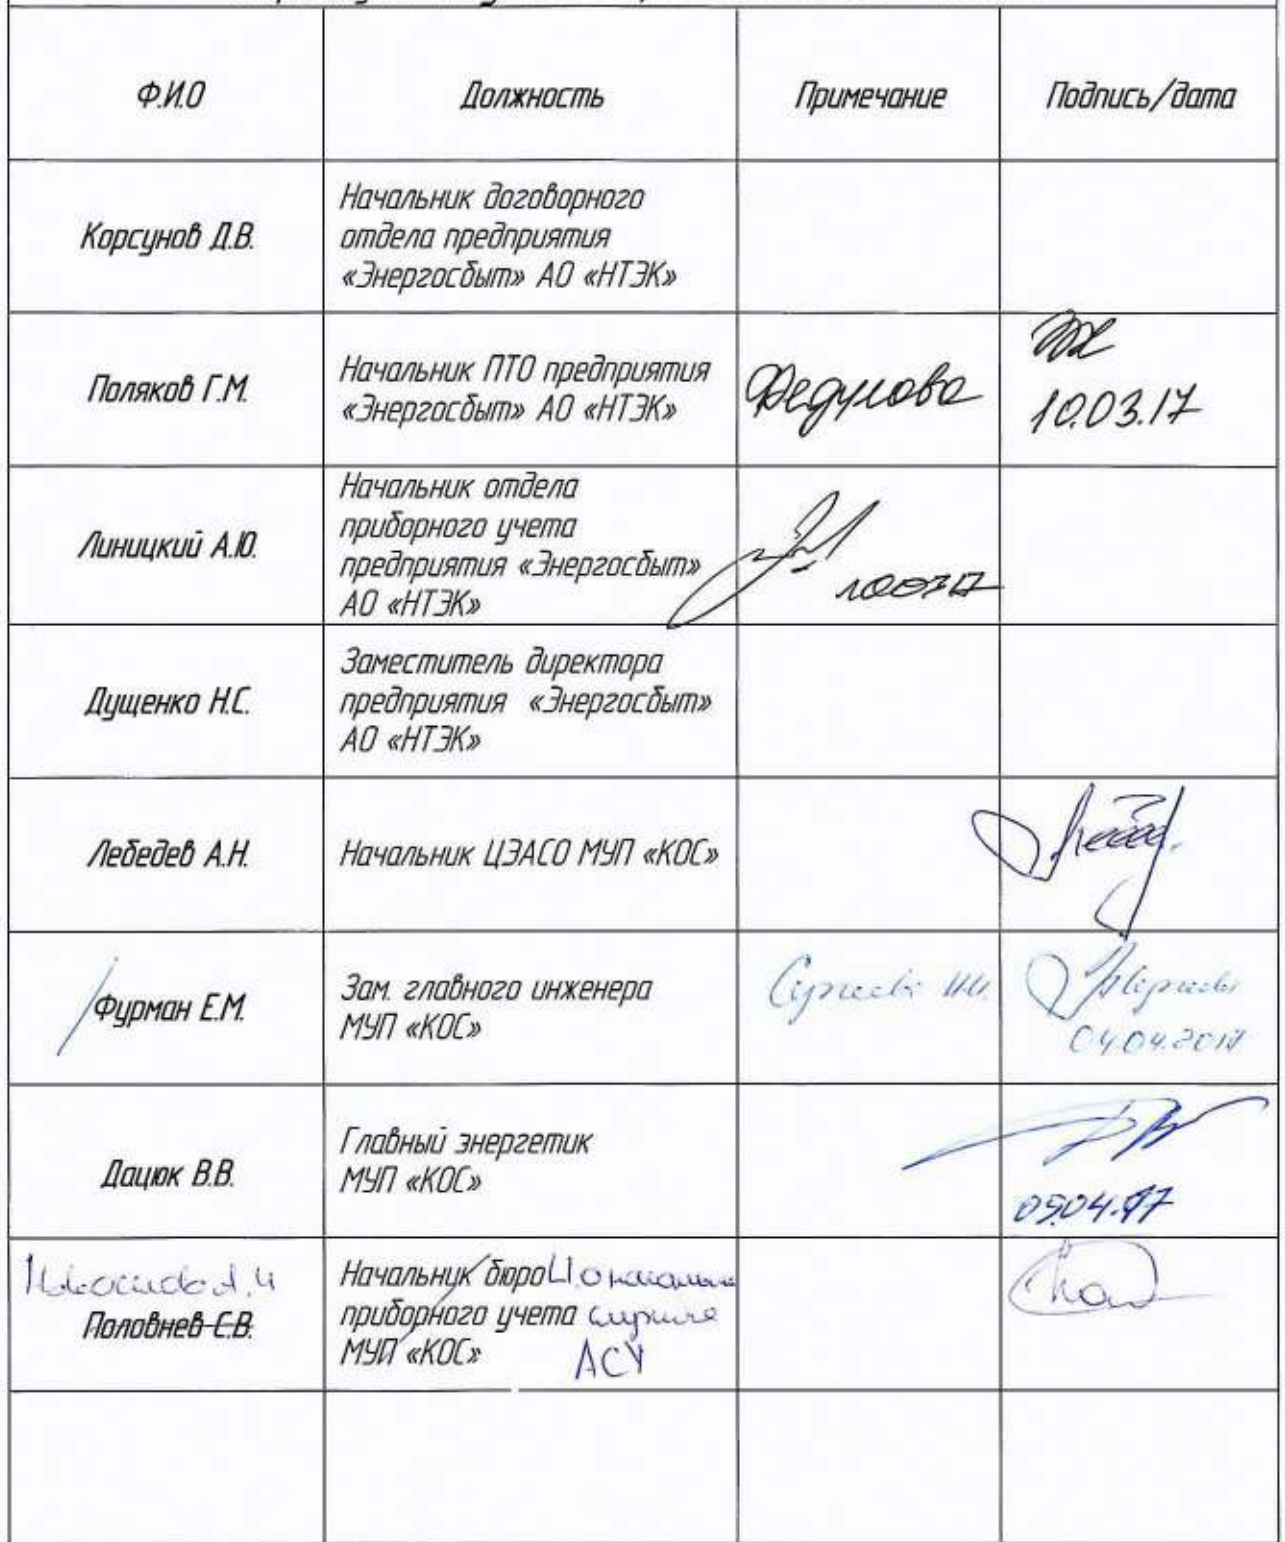 Ф.И.О Должность Примечание Подпись/дата
Корсунов Д.В.
Начальник договорного
отдела предприятия
«Энергосбыт» АО «НТЭК»
Поляков Г.М.
Начальник ПТО предприятия
«Энергосбыт» АО «НТЭК»
Федулова
10.03.17
Линицкий А.Ю.
Начальник отдела
приборного учета
предприятия «Энергосбыт»
АО «НТЭК»
Дущенко Н.С.
Заместитель директора
предприятия «Энергосбыт»
АО «НТЭК»
Лебедев А.Н.
Начальник ЦЭАСО МУП «КОС»
Фурман Е.М.
Зам. главного инженера
МУП «КОС»
04.04.2017
Дацюк В.В.
Главный энергетик
МУП «КОС»
05.04.17
Половнев С.В.
Начальник бюро
приборного учета
МУП «КОС» АСУ